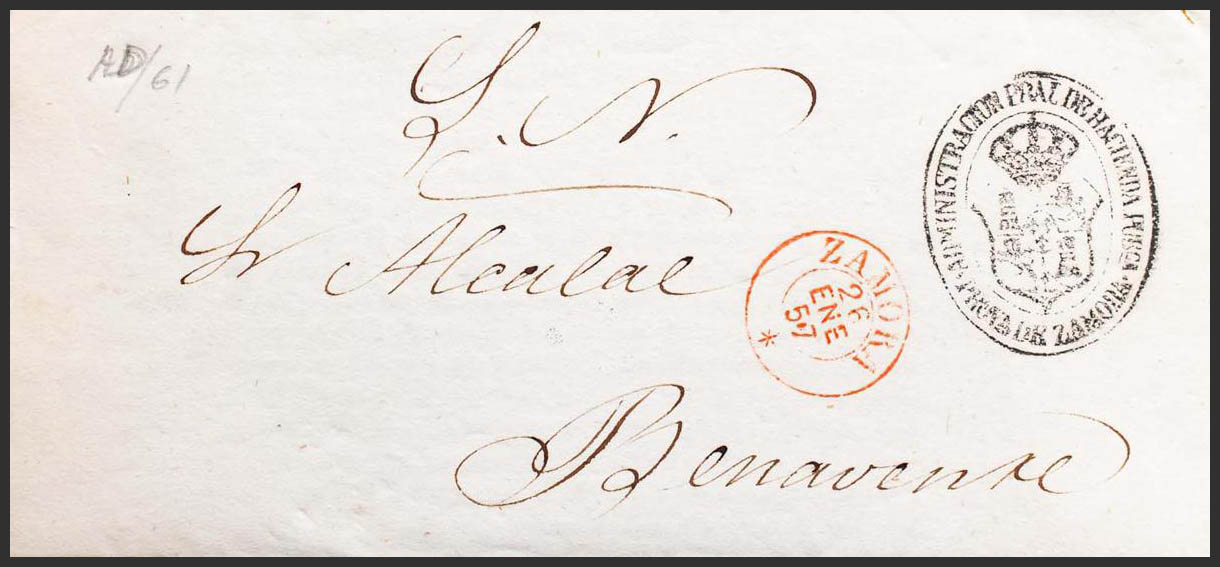 AD/61
S. N.
Sr Alcalde
Benavente
ZAMORA
26
ENE
57
*
ADMINISTRACION PRAL DE HACIENDA PUBCA
PROVA DE ZAMORA